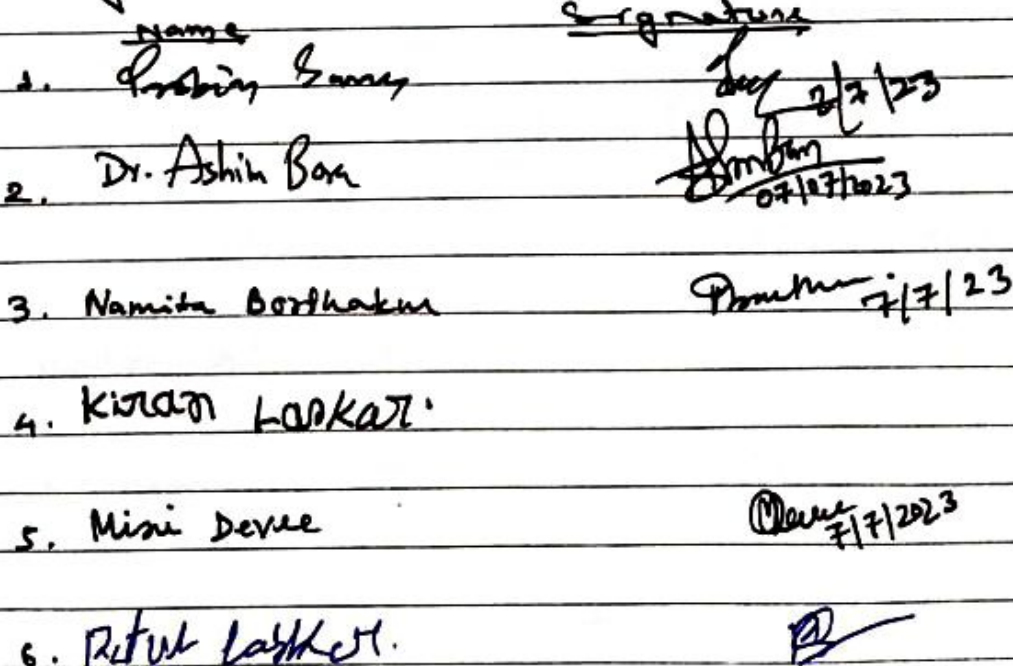 Name Signature
1. Probin 7/7/23
2. Dr. Ashim Bora 07/07/2023
3. Namita Borthakur 7/7/23
4. Kiran Laskar.
5. Mini Devee 7/7/2023
6. Ritul Laskar.